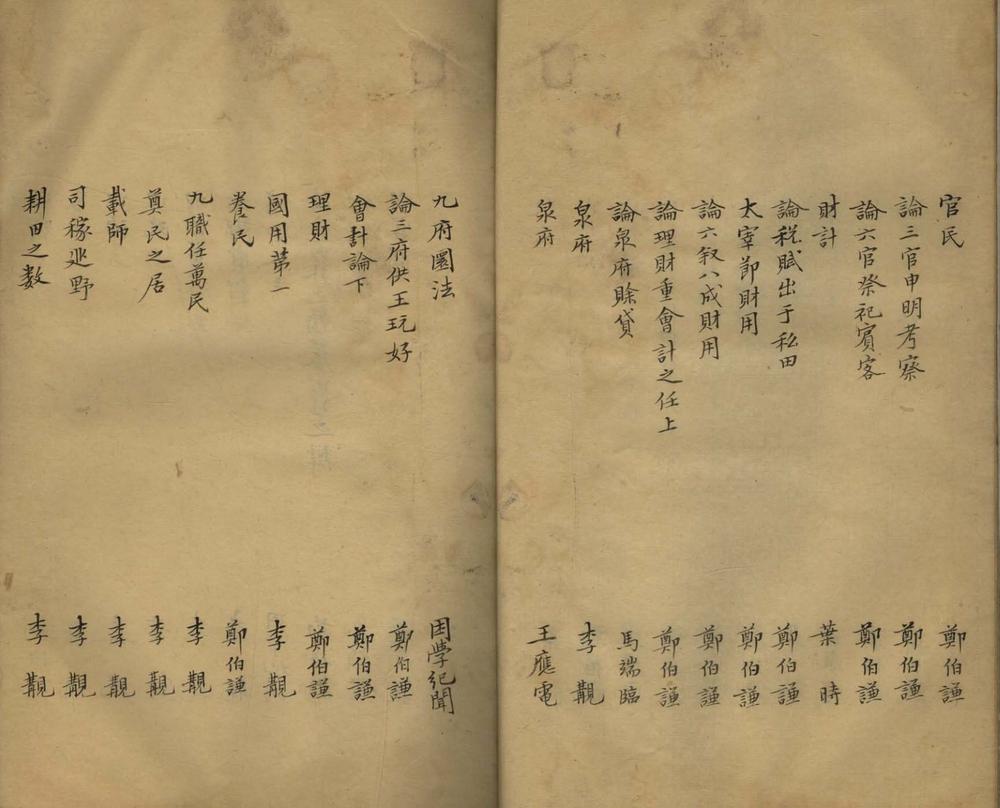 官民 鄭伯謙
論三官申明考察 鄭伯謙
論六官祭祀賓客 鄭伯謙
財計 葉時
論税賦出于私田 鄭伯謙
太宰節財用 鄭伯謙
論六叙八成財用 鄭伯謙
論理財重會計之任上 鄭伯謙
論泉府賖貸 馬端臨
泉府 李覯
泉府 王應電
九府圜法 困學紀聞
論三府供王玩好 鄭伯謙
會計論下 鄭伯謙
理財 鄭伯謙
國用苐一 李覯
養民 鄭伯謙
九職任萬民 李覯
奠民之居 李覯
載師 李覯
司稼廵野 李覯
耕田之數 李覯